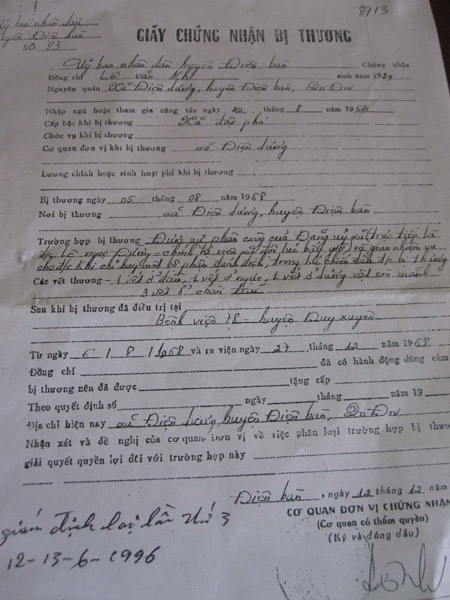 Uỷ ban nhân dân
huyện Điện bàn
Số 83
8713
GIẤY CHỨNG NHẬN BỊ THƯƠNG
Uỷ ban nhân dân huyện Điện bàn Chứng nhận
Đồng chí Lê văn Khi sinh năm 1939
Nguyên quán Xã Điện dương, huyện Điện bàn, QnĐn
Nhập ngũ hoặc tham gia công tác ngày 20 tháng 8 năm 1964
Cấp bậc khi bị thương Xã đội phó
Chức vụ khi bị thương
Cơ quan đơn vị khi bị thương xã Điện dương
Lương chính hoặc sinh hoạt phí khi bị thương
Bị thương ngày 05 tháng 08 năm 1968
Nơi bị thương xã Điện dương, huyện Điện bàn
Trường hợp bị thương Đúng sự phân công của Đảng uỷ xã trực tiếp là
đ/c Lê ngọc chính trị viên xã đội lúc bấy giờ và giao nhiệm vụ
cho đ/c Khi chỉ huy một bộ phận đánh địch, trong lúc chiến đấu đ/c bị thương
Các vết thương - 1 vết ở đầu, 1 vết ở ngực, 1 vết ở
3 vết ở chân
Sau khi bị thương đã điều trị tại
Bệnh viện 78 - huyện Duy xuyên
Từ ngày 6 / 8 / 1968 và ra viện ngày 27 tháng 12 năm 1968
Đồng chí đã có hành động dũng cảm
bị thương nên đã được tặng cấp
Theo quyết định số ngày tháng năm 19
Địa chỉ hiện nay xã Điện dương, huyện Điện bàn, QnĐn
Nhận xét và đề nghị của cơ quan đơn vị về việc phân loại trường hợp bị thương
giải quyết quyền lợi đối với trường hợp này
Điện bàn, ngày 12 tháng 12 năm
CƠ QUAN ĐƠN VỊ CHỨNG NHẬN
(Cơ quan có thẩm quyền)
(Ký và đóng dấu)
giám định lại lần thứ 3
12-13-6-1996